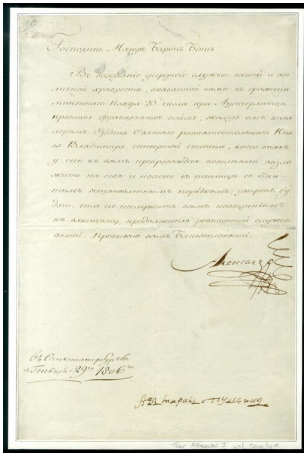 Господинъ Маіоръ Баронъ
Въ воздаяніе усердной службы вашей и от-
личной храбрости, оказанной вами въ сраженіи
минувшаго Ноября 20 числа при Аустерлицѣ
противъ французскихъ войскъ, жалую васъ кава-
леромъ Ордена Святаго равноапостольнаго Кня-
зя Владимира четвертой степени, коего знакъ
у сего къ вамъ препровождая повелѣваю возло-
жить на себя и носить въ петлицѣ съ бан-
томъ установленнымъ порядкомъ, увѣренъ бу-
дучи, что сіе послужитъ вамъ поощреніемъ
къ вящшему продолженію ревностной службы
вашей. Пребываю вамъ благосклонный.
Александръ
въ Санктпетербургѣ
Генваря 29го 1806го
Tsar Alexander I